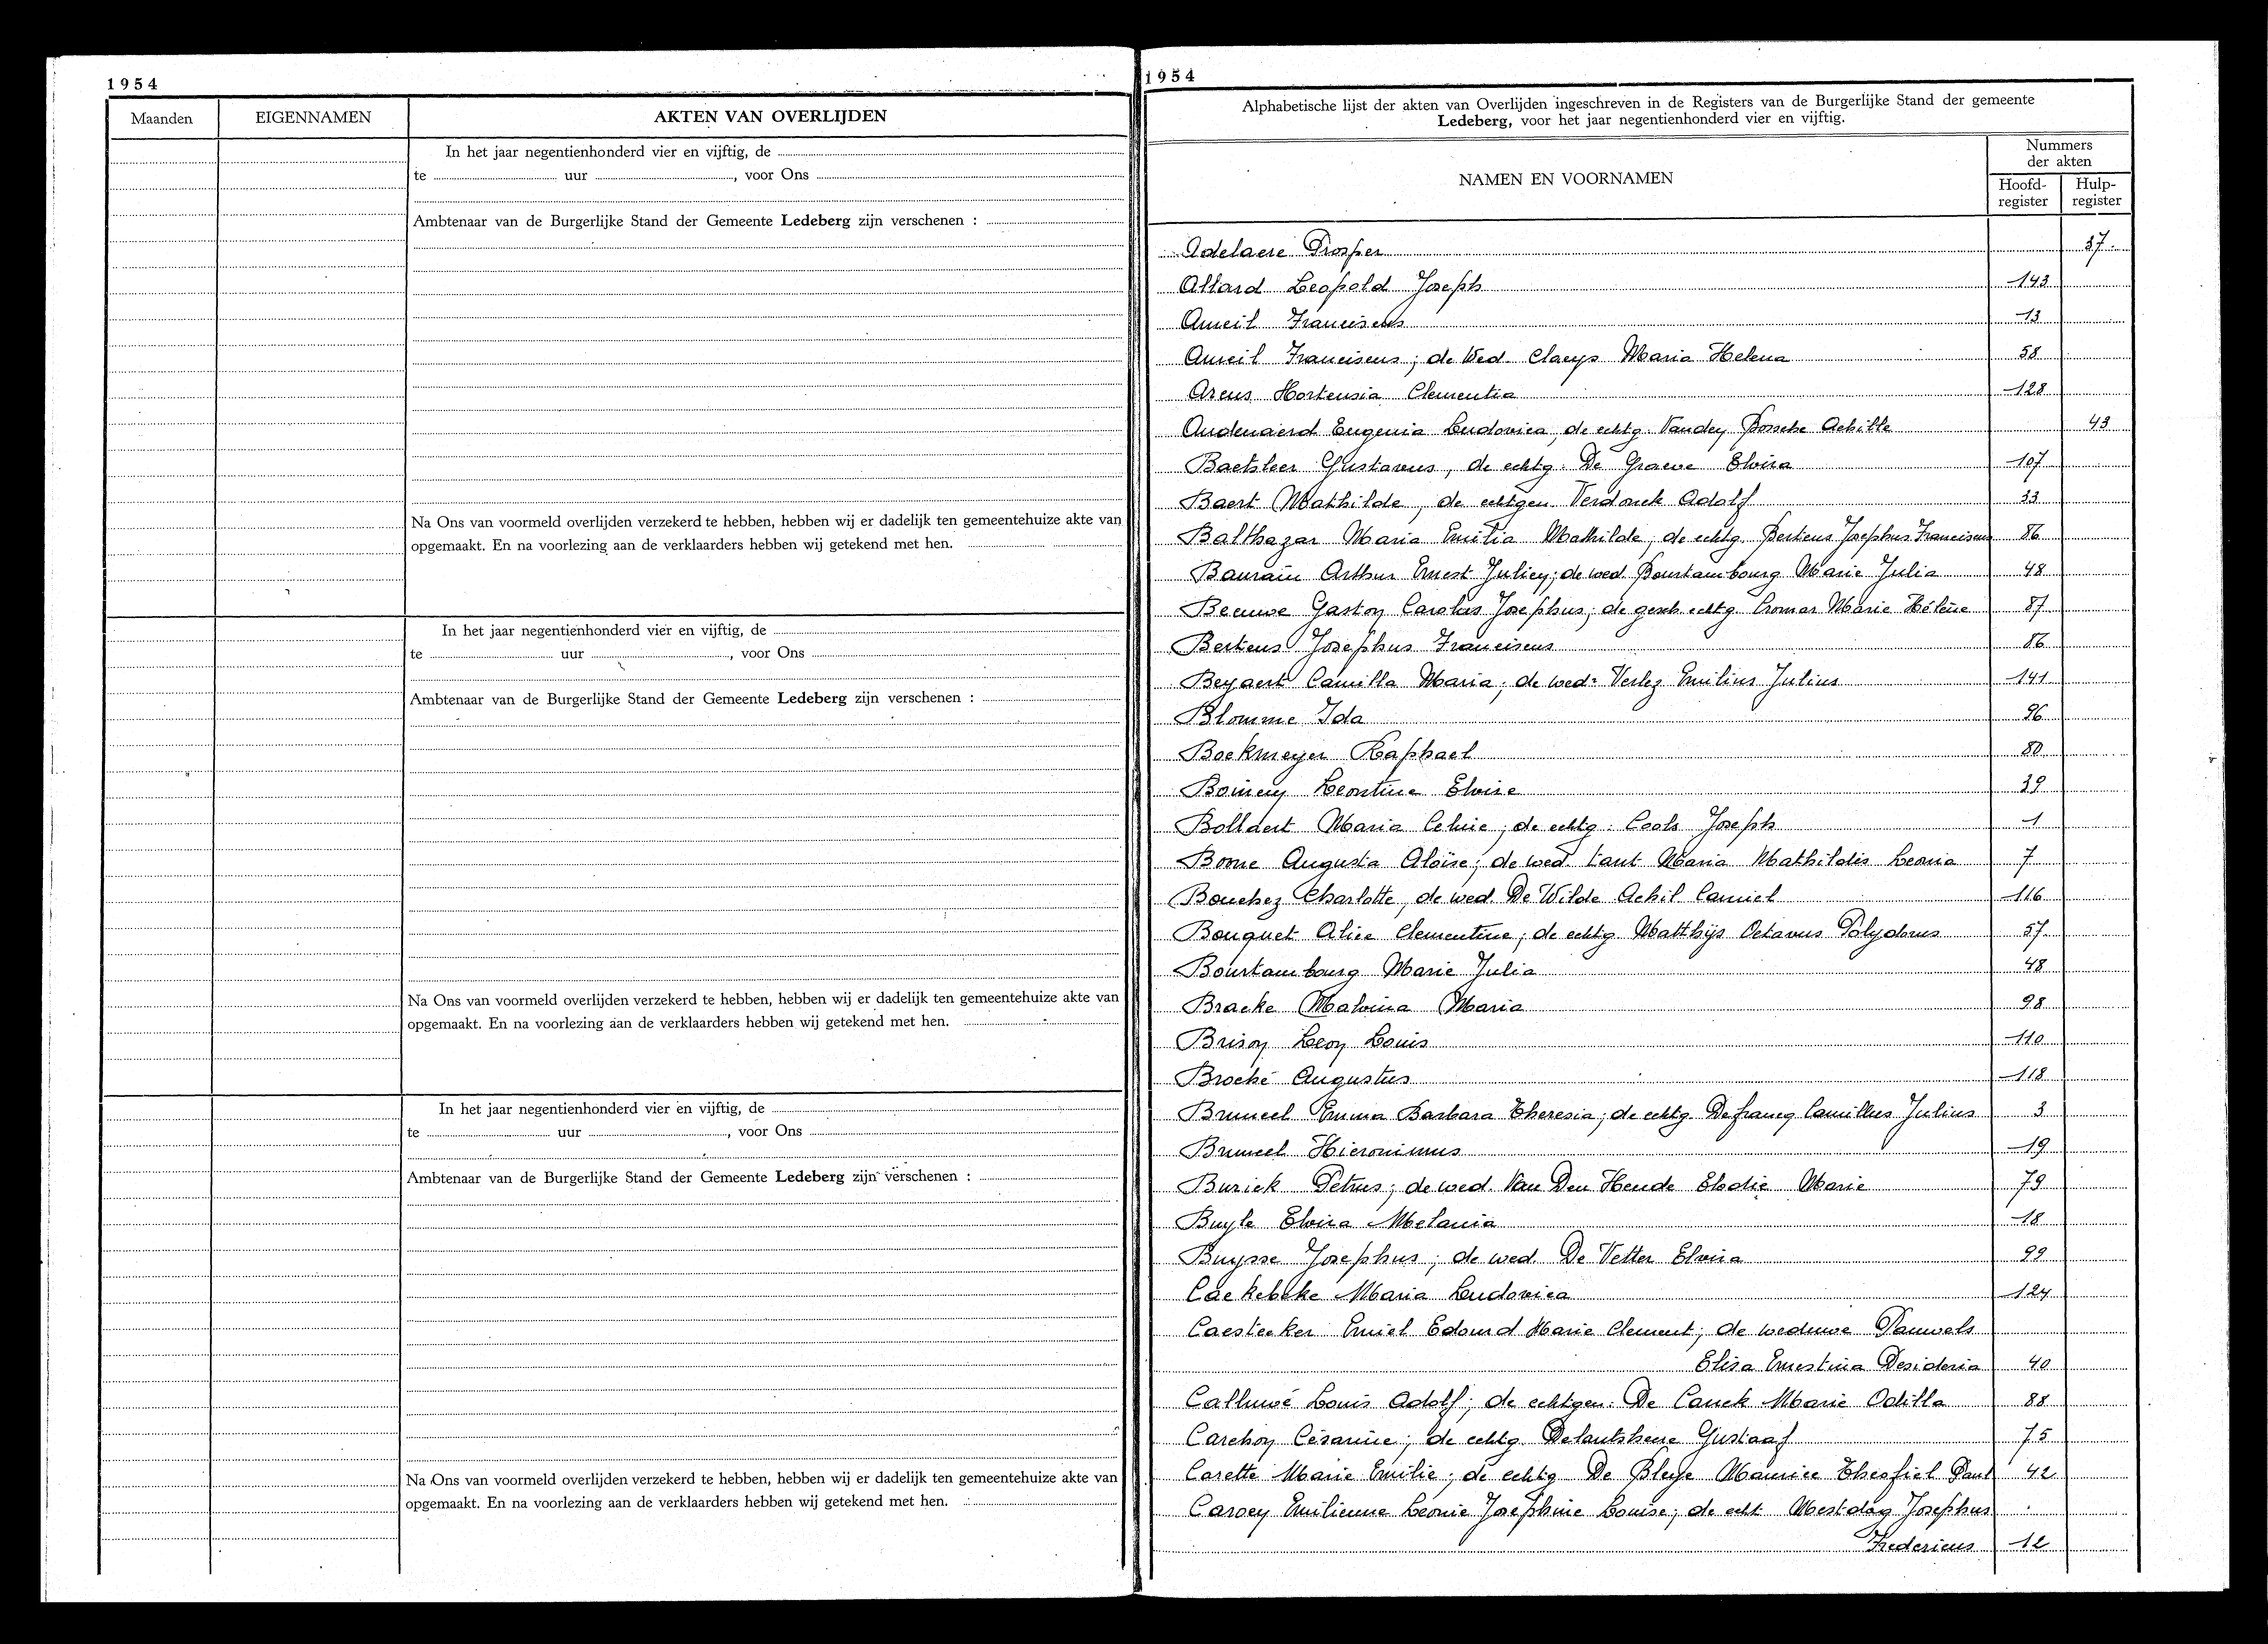 1954
Maanden EIGENNAMEN AKTEN VAN OVERLIJDEN
In het jaar negentienhonderd vier en vijftig, de
te uur , voor Ons
Ambtenaar van de Burgerlijke Stand der Gemeente Ledeberg zijn verschenen :
Na Ons van voormeld overlijden verzekerd te hebben, hebben wij er dadelijk ten gemeentehuize akte van
opgemaakt. En na voorlezing aan de verklaarders hebben wij getekend met hen.
In het jaar negentienhonderd vier en vijftig, de
te uur , voor Ons
Ambtenaar van de Burgerlijke Stand der Gemeente Ledeberg zijn verschenen :
Na Ons van voormeld overlijden verzekerd te hebben, hebben wij er dadelijk ten gemeentehuize akte van
opgemaakt. En na voorlezing aan de verklaarders hebben wij getekend met hen.
In het jaar negentienhonderd vier en vijftig, de
te uur , voor Ons
Ambtenaar van de Burgerlijke Stand der Gemeente Ledeberg zijn verschenen :
Na Ons van voormeld overlijden verzekerd te hebben, hebben wij er dadelijk ten gemeentehuize akte van
opgemaakt. En na voorlezing aan de verklaarders hebben wij getekend met hen.
1954
Alphabetische lijst der akten van Overlijden ingeschreven in de Registers van de Burgerlijke Stand der gemeente
Ledeberg, voor het jaar negentienhonderd vier en vijftig.
NAMEN EN VOORNAMEN
Nummers
der akten
Hoofd-register Hulp-register
Adelaere Prosper 37
Allard Leopold Joseph 143
Anseil Franciscus 13
Anseil Franciscus; de Wed. Claeys Maria Helena 58
Arens Hortensia Clementia 128
Audenaerd Eugenia Ludovica, de echtg. Vanden Bossche Achille 43
Baetsleer Gustavus, de echtg. De Graeve Elvira 107
Baert Mathilde, de echtgen Verdonck Adolf 33
Balthazar Maria Emilia Mathilde, de echtg. Bertens Josephus Franciscus 86
Baurain Arthur Ernest Julien; de wed. Bourtambourg Marie Julia 48
Beeuwe Gaston Carolus Josephus; de gesch. echtg. Cromar Marie Hélène 87
Bertens Josephus Franciscus 86
Beyaert Camilla Maria; de wed. Verlez Emilius Julius 141
Blomme Ida 96
Boekmeyer Raphael 80
Boiney Leontine Elvire 39
Bolldert Maria Celinie; de echtg. Cools Joseph 1
Borne Augusta Aloïse; de wed. Maria Mathildis Leonia 7
Bouchez Charlotte, de wed. De Wilde Achil Camiel 116
Bouquet Alice Clementine; de echtg. Matthijs Octavus Polydorus 57
Bourtambourg Marie Julia 48
Bracke Malvina Maria 98
Brison Leon Louis 110
Broché Augustus 118
Bruneel Emma Barbara Theresia; de echtg. Defrancq Camillus Julius 3
Bruneel Hieronimus 19
Burick Petrus; de wed. Van Den Hende Elodie Marie 79
Buyle Elvira Melania 18
Buysse Josephus; de wed. De Vetter Elvira 99
Caekebeke Maria Ludovica 124
Caestecker Emiel Edouard Marie Clement; de weduwe Pauwels
Elisa Ernestina Desideria 40
Calluwé Louis Adolf; de echtgen. De Canck Marie Odilla 88
Carchon Césarine; de echtg. Delantsheere Gustaaf 75
Carette Marie Emilie; de echtg. De Bleye Maurice Theofiel Paul 42
Carven Emilienne Leonie Josephine Louise; de echt. Mestdag Josephus
Fredericus 12